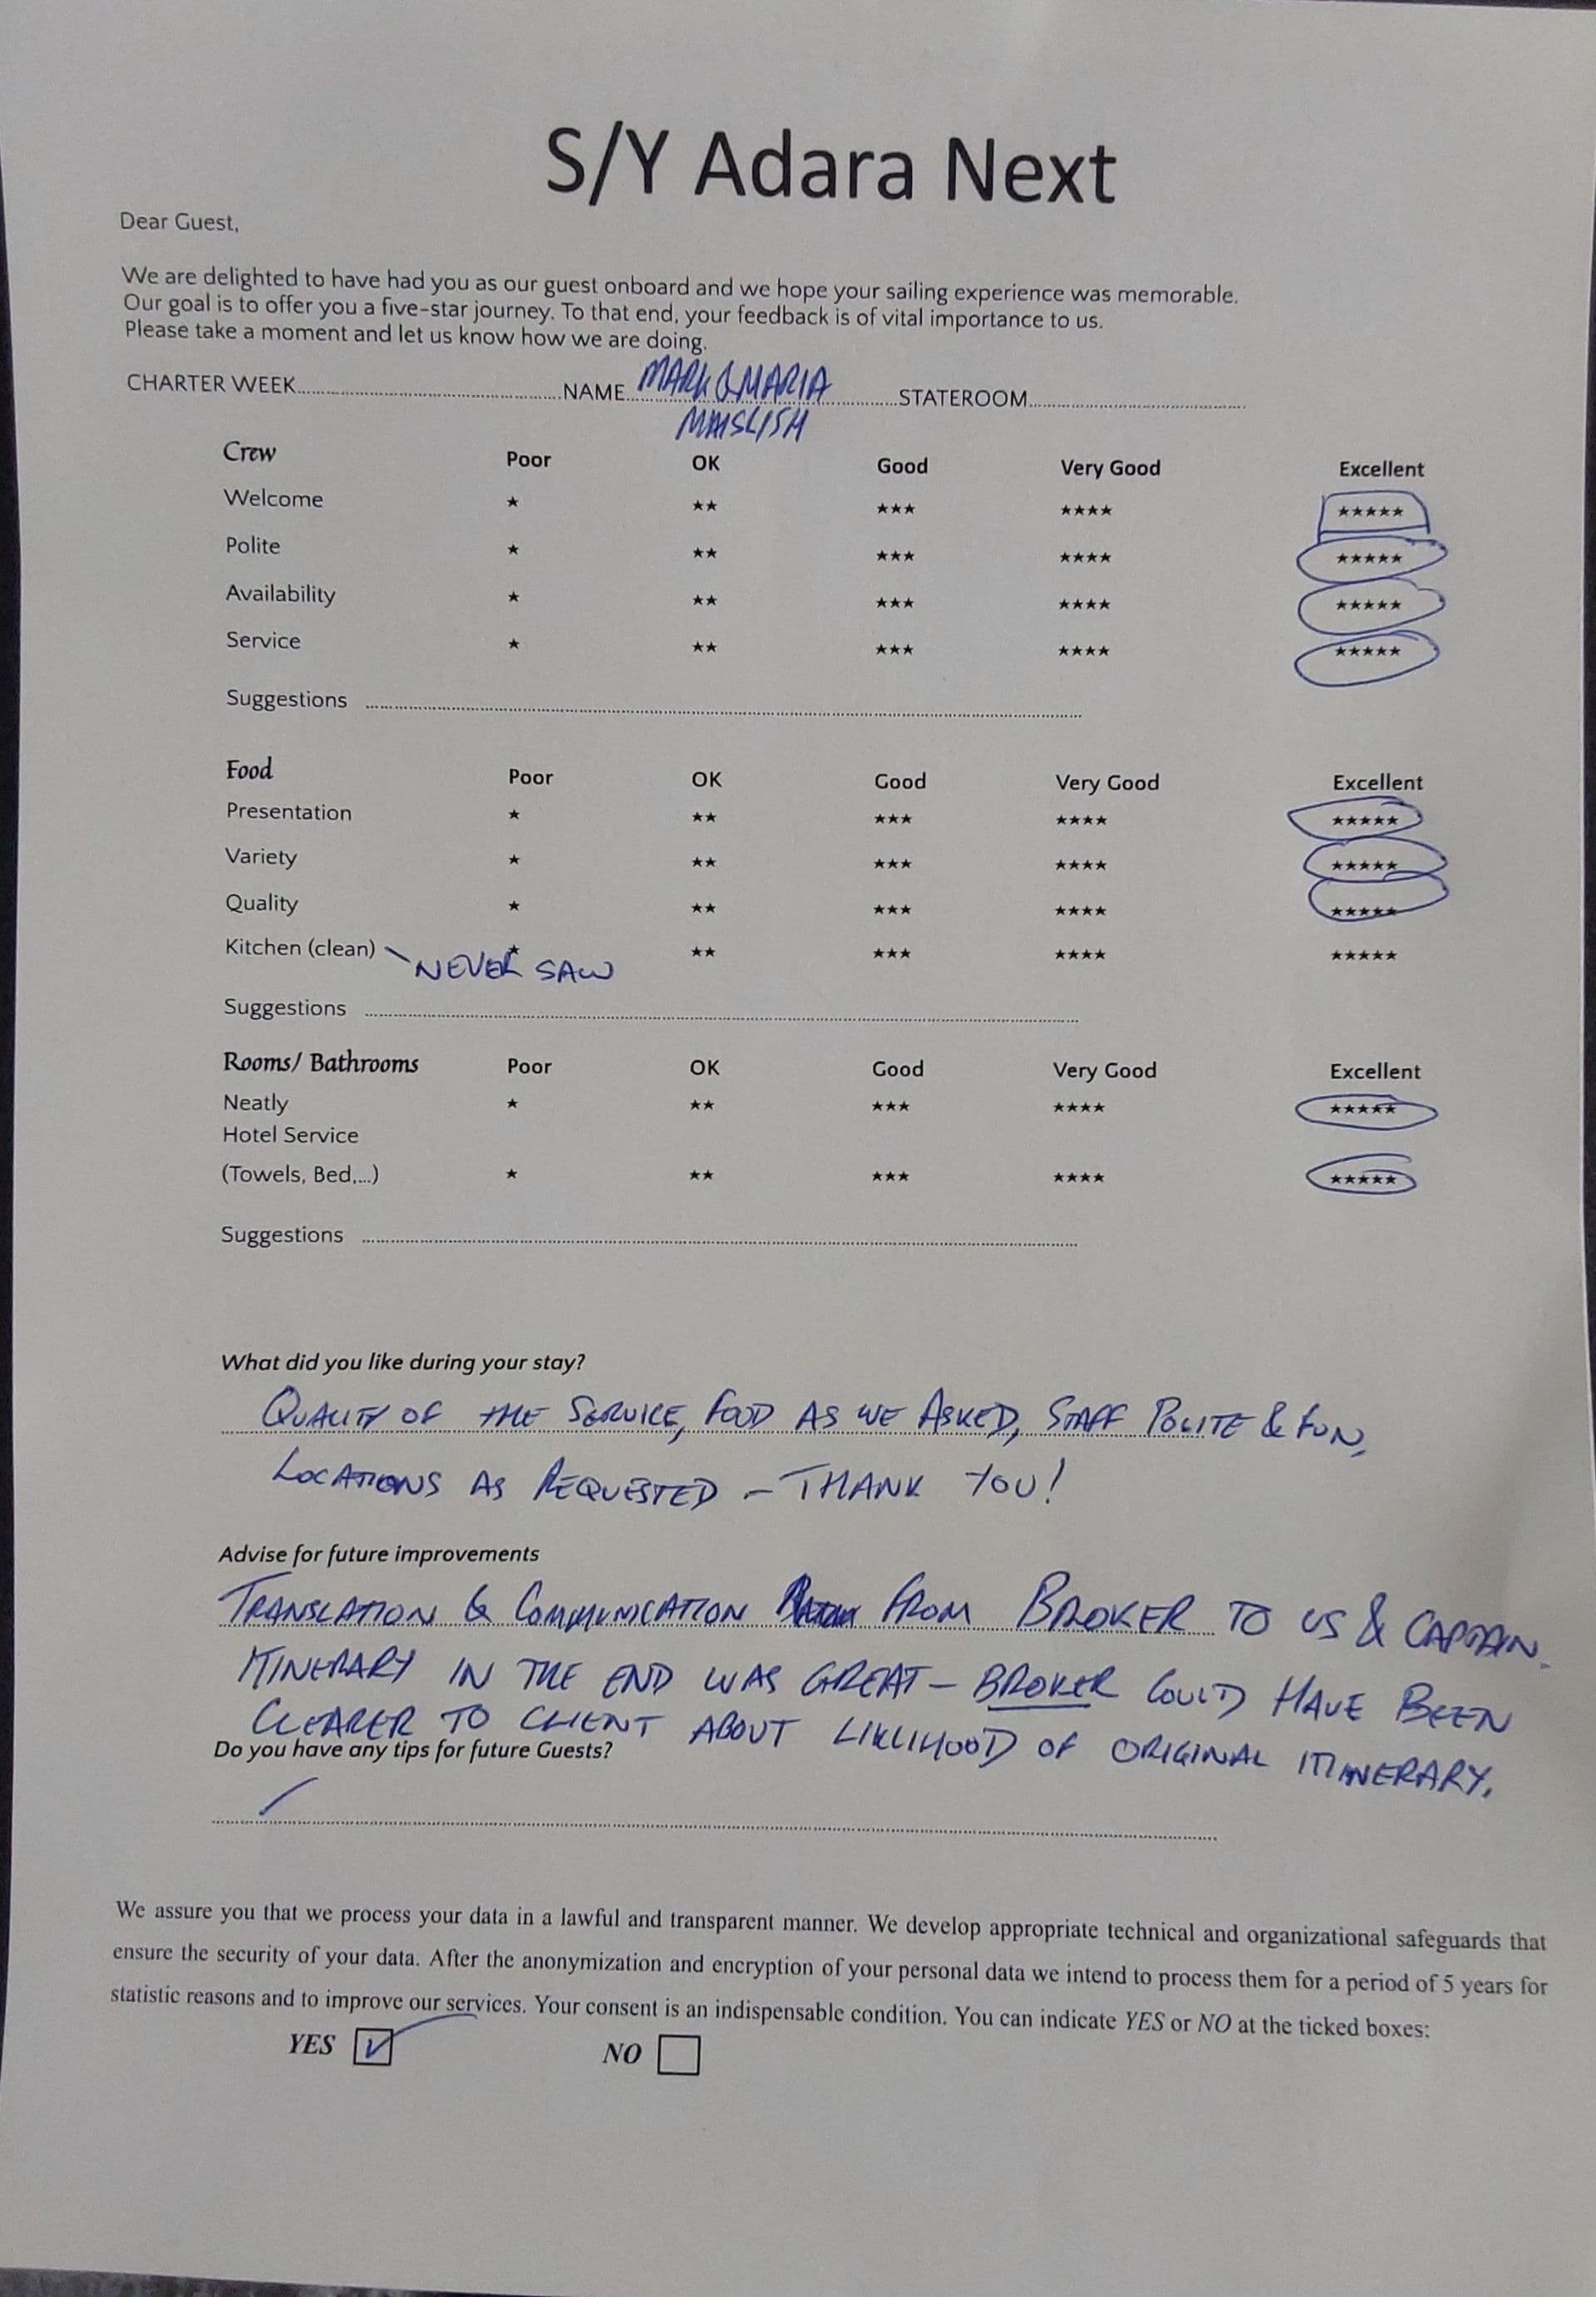 S/Y Adara Next
Dear Guest,
We are delighted to have had you as our guest onboard and we hope your sailing experience was memorable.
Our goal is to offer you a five-star journey. To that end, your feedback is of vital importance to us.
Please take a moment and let us know how we are doing.
CHARTER WEEK.......... NAME.... MARK & MARIA .......... STATEROOM..........
Crew Poor OK Good Very Good Excellent
Welcome ★ ★★ ★★★ ★★★★ ★★★★★
Polite ★ ★★ ★★★ ★★★★ ★★★★★
Availability ★ ★★ ★★★ ★★★★ ★★★★★
Service ★ ★★ ★★★ ★★★★ ★★★★★
Suggestions ..........
Food Poor OK Good Very Good Excellent
Presentation ★ ★★ ★★★ ★★★★ ★★★★★
Variety ★ ★★ ★★★ ★★★★ ★★★★★
Quality ★ ★★ ★★★ ★★★★ ★★★★★
Kitchen (clean) ★ ★★ ★★★ ★★★★ ★★★★★
NEVER SAW
Suggestions ..........
Rooms/ Bathrooms Poor OK Good Very Good Excellent
Neatly ★ ★★ ★★★ ★★★★ ★★★★★
Hotel Service
(Towels, Bed,...) ★ ★★ ★★★ ★★★★ ★★★★★
Suggestions ..........
What did you like during your stay?
QUALITY OF THE SERVICE, FOOD AS WE ASKED, STAFF POLITE & FUN,
LOCATIONS AS REQUESTED – THANK YOU!
Advise for future improvements
TRANSLATION & COMMUNICATION FROM BROKER TO US & CAPTAIN.
ITINERARY IN THE END WAS GREAT – BROKER COULD HAVE BEEN
CLEARER TO CLIENT ABOUT LIKLIHOOD OF ORIGINAL ITINERARY.
Do you have any tips for future Guests?
/
We assure you that we process your data in a lawful and transparent manner. We develop appropriate technical and organizational safeguards that
ensure the security of your data. After the anonymization and encryption of your personal data we intend to process them for a period of 5 years for
statistic reasons and to improve our services. Your consent is an indispensable condition. You can indicate YES or NO at the ticked boxes:
YES ☑ NO ☐